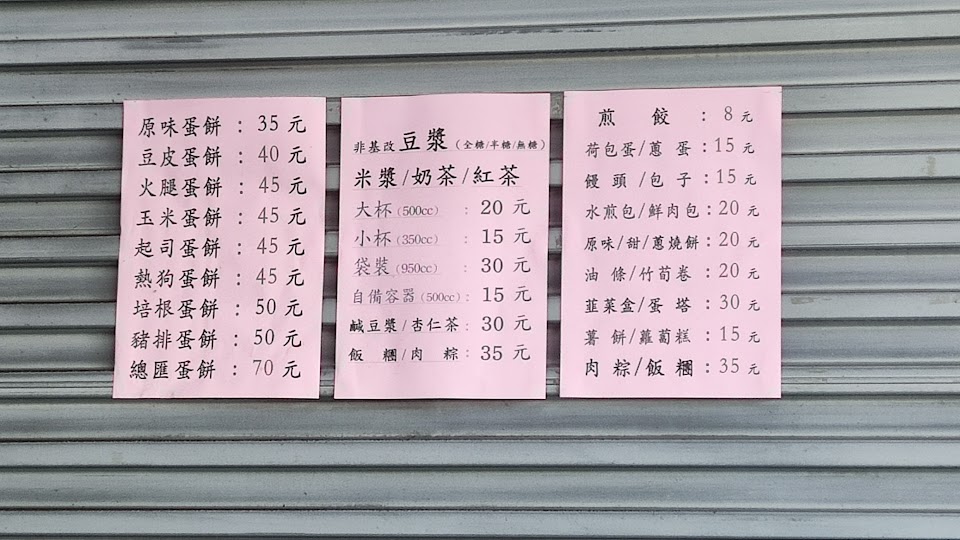 原味蛋餅：35 元
豆皮蛋餅：40 元
火腿蛋餅：45 元
玉米蛋餅：45 元
起司蛋餅：45 元
熱狗蛋餅：45 元
培根蛋餅：50 元
豬排蛋餅：50 元
總匯蛋餅：70 元
非基改豆漿（全糖/半糖/無糖）
米漿/奶茶/紅茶
大杯（500cc）：20 元
小杯（350cc）：15 元
袋裝（950cc）：30 元
自備容器（500cc）：15 元
鹹豆漿/杏仁茶：30 元
飯糰/肉粽：35 元
煎餃：8 元
荷包蛋/蔥蛋：15 元
饅頭/包子：15 元
水煎包/鮮肉包：20 元
原味/甜/蔥燒餅：20 元
油條/竹荀卷：20 元
韮菜盒/蛋塔：30 元
薯餅/蘿蔔糕：15 元
肉粽/飯糰：35 元